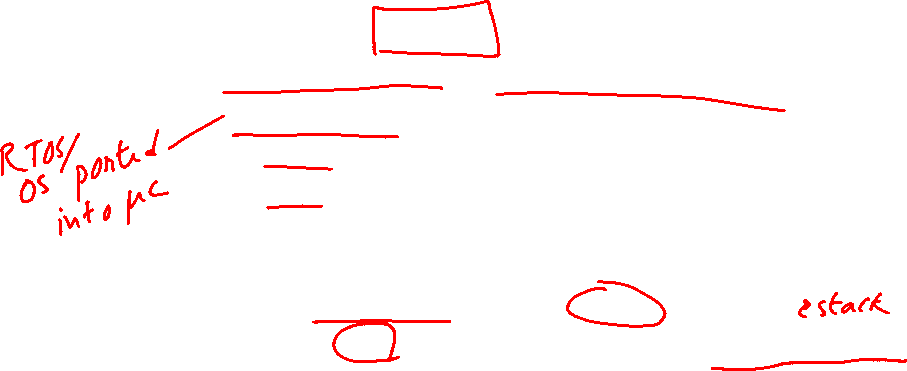 RTOS/
OS ported
into µc
estack